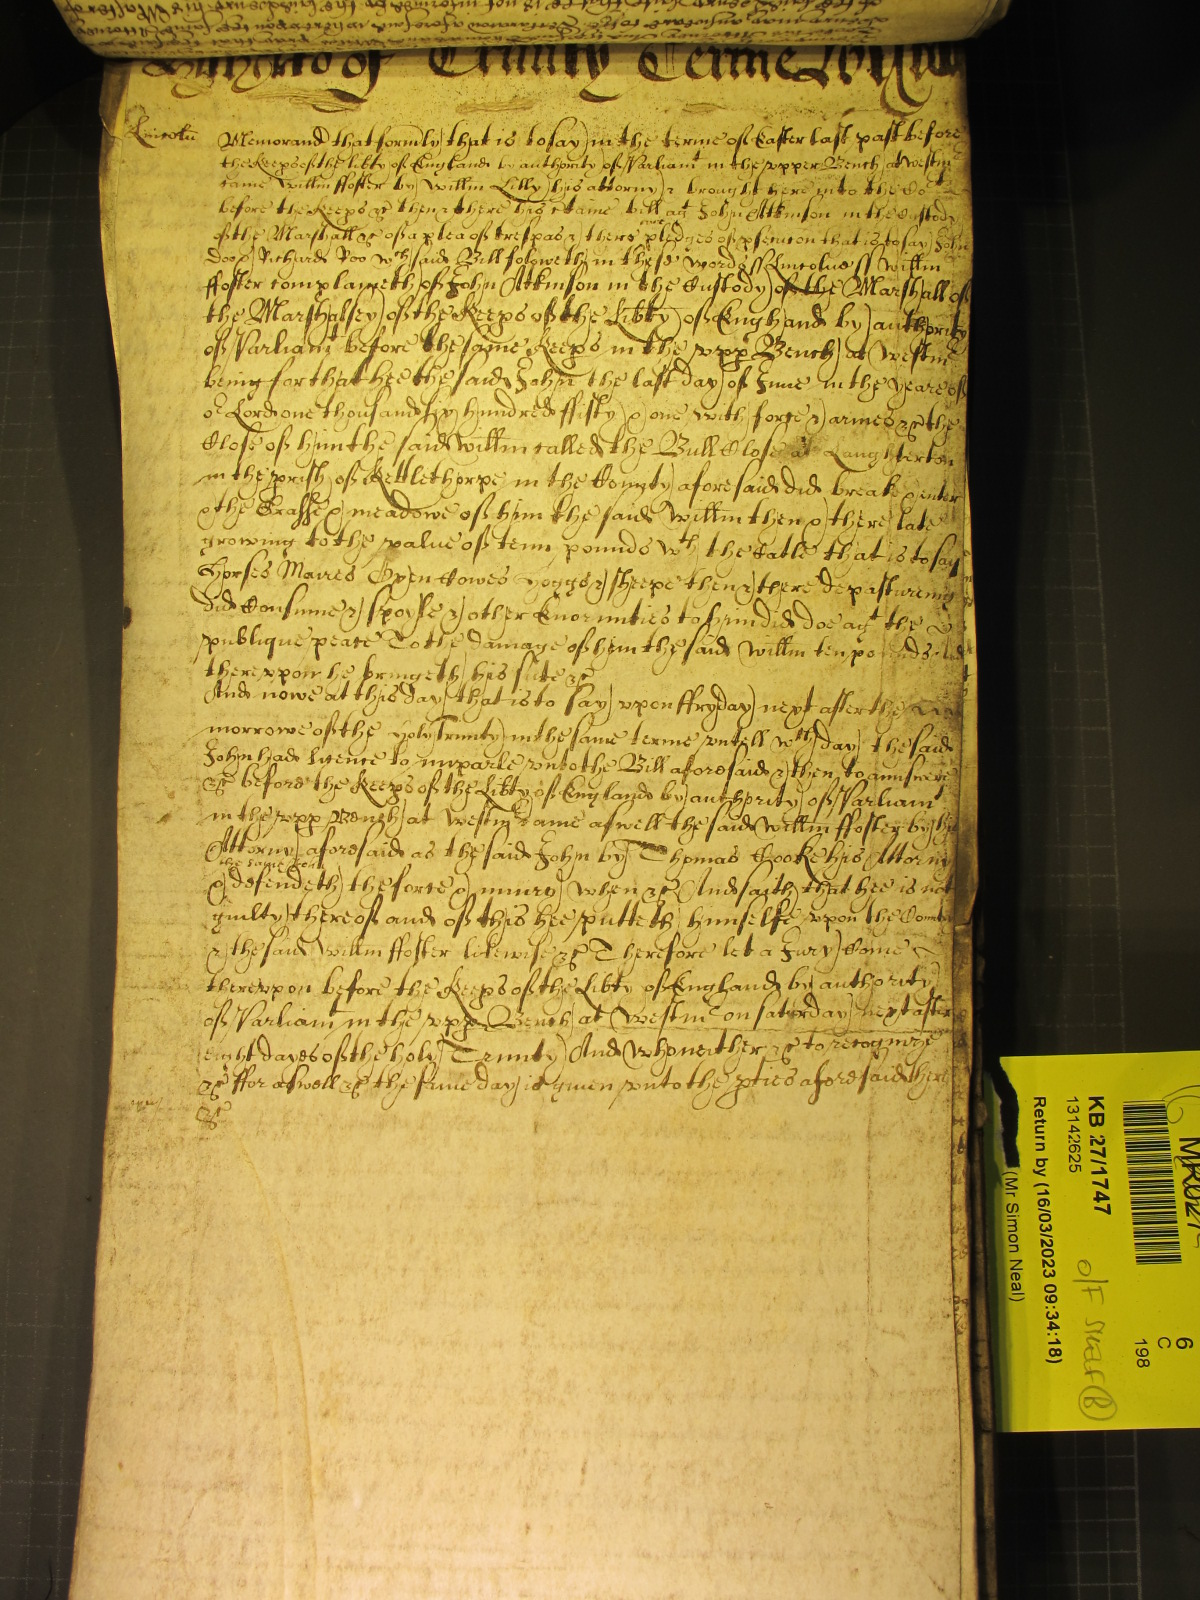 of Trinity Terme
Lincoln
Memorand that formly that is to say in the terme of Easter last past before
the Keeps of the libty of England by authority of Parliamt in the upper Bench at Westmr
came Willm ffoster by Willm Lilly his attorny & brought here into the Co
before the Keeps &c then & there his certaine bill agt John Atkinson in the Custody
of the Marshall &c of a plea of trespas & there are pledges of psecucon that is to say John
Doo & Richard Roo wch said Bill followeth in these words ss Lincolne ss Willm
ffoster complaineth of John Atkinson in the Custody of the Marshall of
the Marshalsey of the Keeps of the Libty of England by authority
of Parliamt before the same Keeps in the upp Bench at Westmr
being for that hee the said John the last day of June in the yeare of
or Lord one thousand six hundred ffifty & one with force & armes &c the
Close of him the said Willm called the Bull Close at Laughterton
in the prish of Kettlethorpe in the County aforesaid did breake & enter
& the Grasse & meadowe of him the said Willm then & there late
growing to the value of tenn pounds wth the Catle that is to say
Horses Mares Oxen Cowes Hoggs & sheepe then & there depastureing
did Consume & spoyle & other Enormities to him did doe agt the
publique peace To the damage of him the said Willm ten pounds And
thereupon he bringeth his suite &c
And nowe at this day that is to say upon ffryday next after the
morrowe of the holy Trinity in the same terme untill wch day the said
John had licence to imparle unto the Bill aforesaid & then to answere
&c before the Keeps of the Libty of England by authority of Parliamt
in the upp Bench at Westmr came aswell the said Willm ffoster by his
Attorny aforesaid as the said John by Thomas Cooke his Attorny
the same John
& defendeth the force & iniury when &c And saith that hee is not
guilty thereof and of this hee putteth himselfe upon the Country
& the said Willm ffoster likewise &c Therefore let a Jury Come
thereupon before the Keeps of the Libty of England by authority
of Parliamt in the upp Bench at Westmr on saturday next after
eight dayes of the holy Trinity And who neither &c to recognize
&c ffor aswell &c the same day is given unto the pties aforesaid there
&c
KB 27/1747
13142625
Return by (16/03/2023 09:34:18)
(Mr Simon Neal)
6
C
198